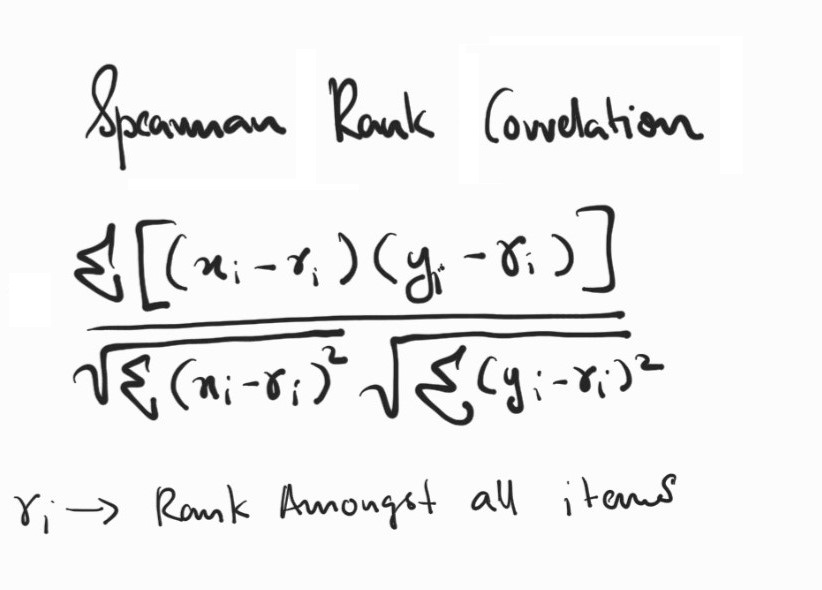 Spearman Rank Correlation
Σ[(xᵢ-rᵢ)(yᵢ-rᵢ)]
√Σ(xᵢ-rᵢ)² √Σ(yᵢ-rᵢ)²
rᵢ → Rank Amongst all items